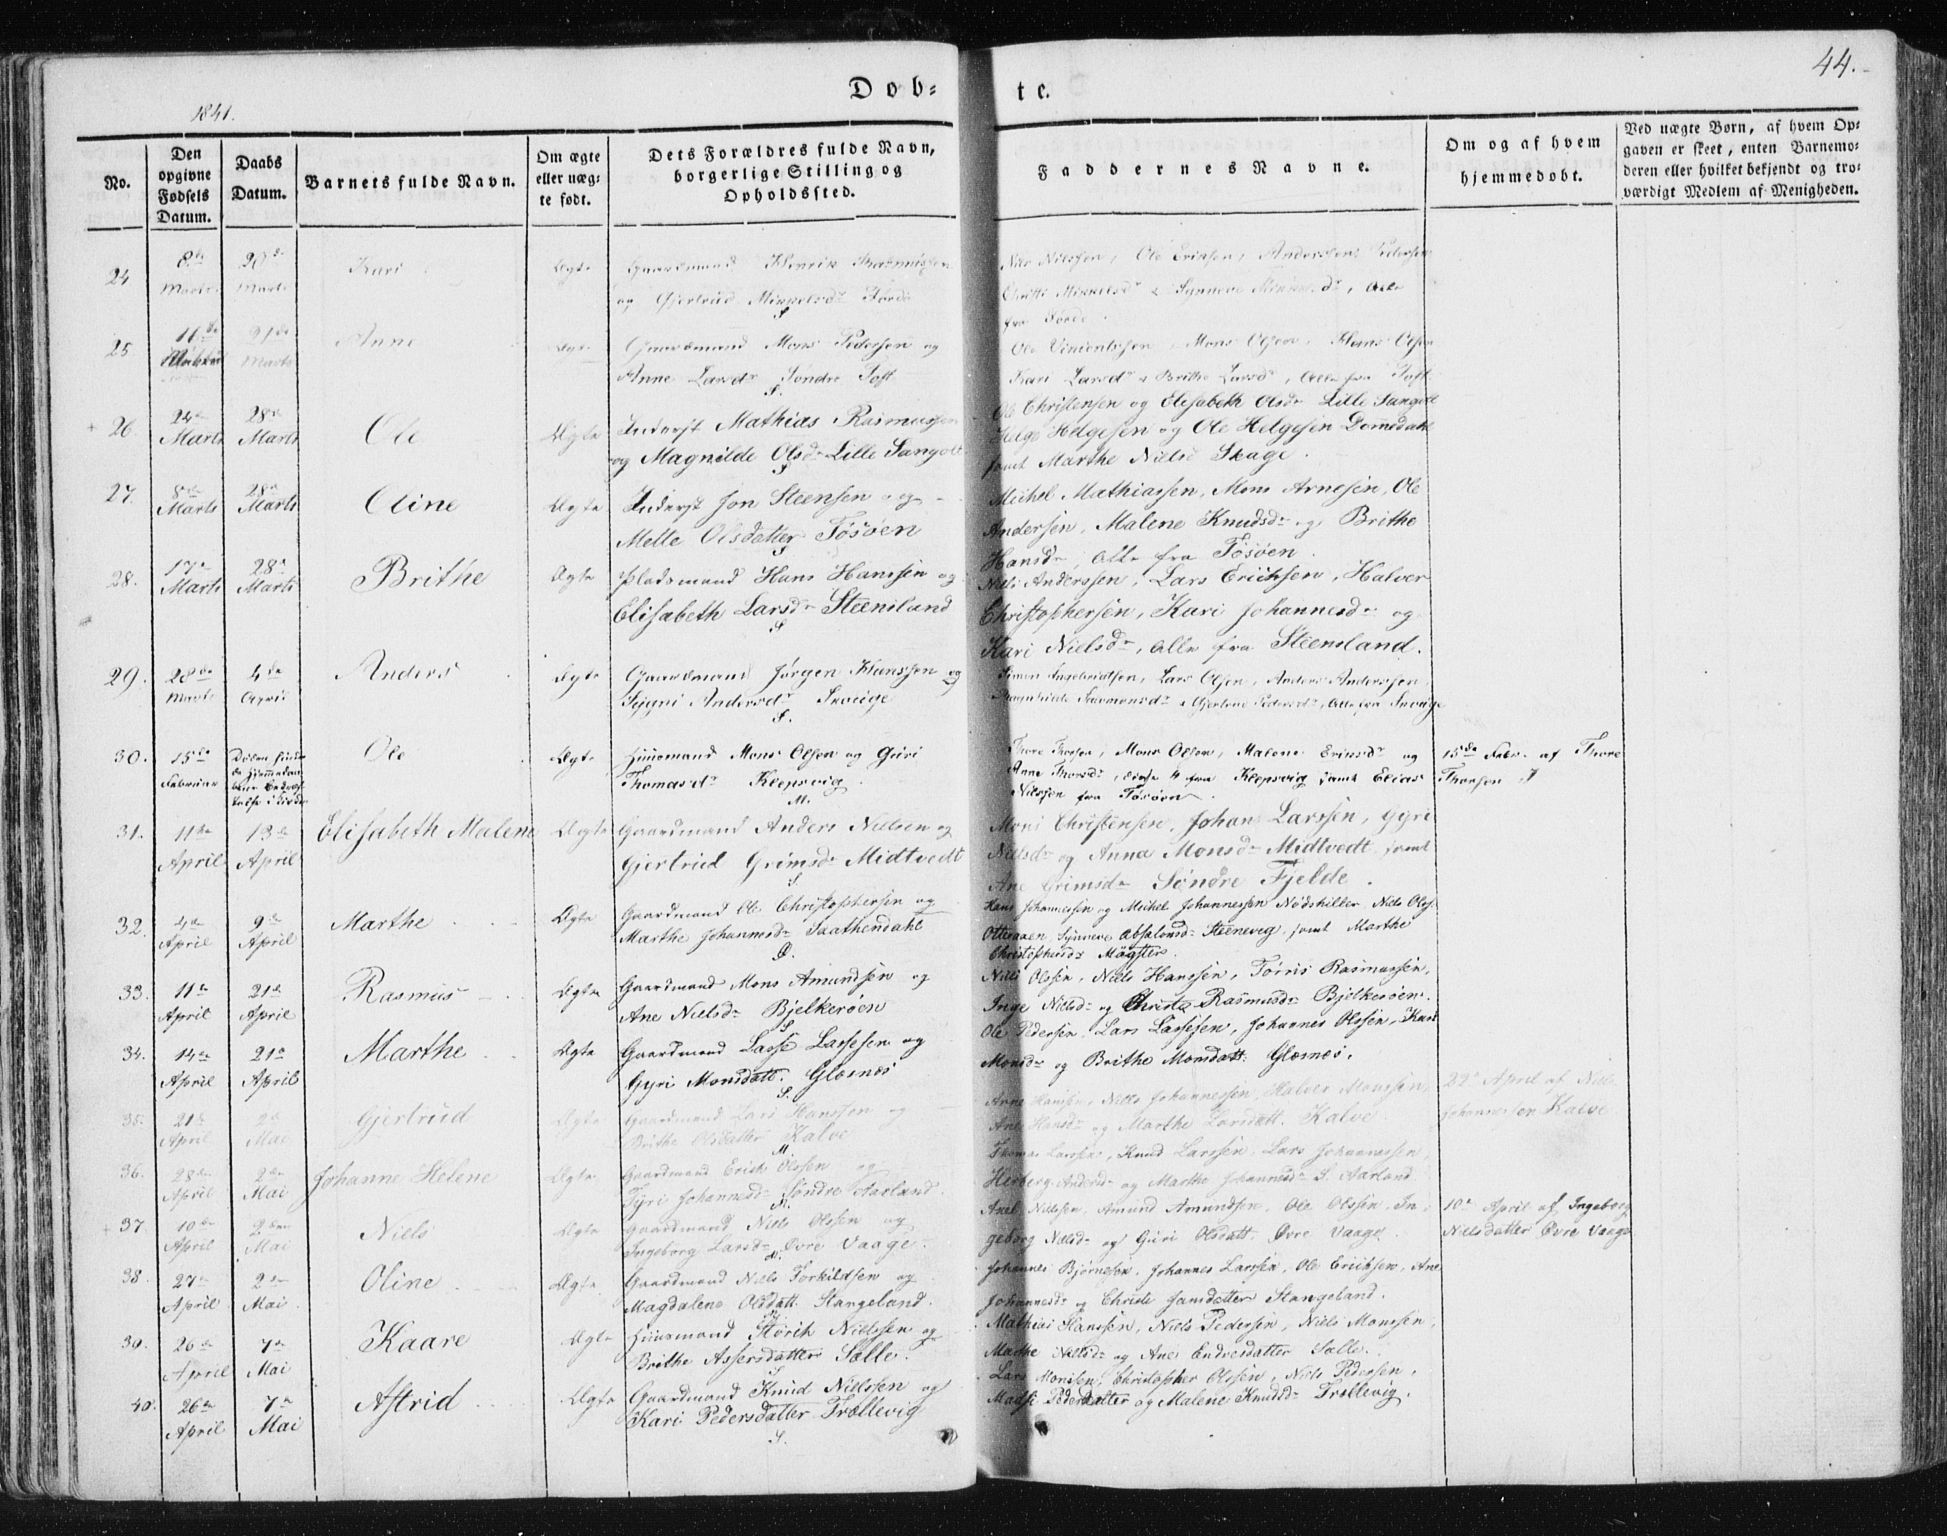 44.
Dob=
te.
1841.
No.
Den opgivne Fødsels Datum.
Daabs Datum.
Barnets fulde Navn.
Om ægte eller uæg= te født.
Dets Forældres fulde Navn, borgerlige Stilling og Opholdssted.
Faddernes Navne.
Om og af hvem hjemmedøbt.
Ved uægte Børn, af hvem Op= gaven er skeet, enten Barnemo= deren eller hvilket bekjendt og tro= værdigt Medlem af Menigheden.
24 8de Marts Marts Kari Ægte Gaardmand Henrik
og Gjertrud Mikkelsdr Førde
Nils Nilssen, Ole Eriksen, Pedersen
Mikkelsdr & Synneve, Alle
fra Førde.
25 Marts 21de Marts Anne Ægte Gaardmand Mons Pedersen og
Anne Larsdr Søndre Toft
S.
Ole Vincentssen, Mons Olsen, Hans Olsen
Kari Larsdr & Brithe Larsdr, Alle fra Toft
26. 24de Marts 28de Marts Ole Ægte Inderst Mathias Rasmussen
og Magnilde Olsdr Lille Sangolt
S
Ole Christensen og Elisabeth Olsdr Lille Sangolt
Helge Helgesen og Ole Helgesen Domedahl
samt Marthe Niels Skage.
27. 8de Marts 28de Marts Oline Ægte Inderst Jon Steensen og
Mette Olsdatter Føsöen
Michel Mathiassen, Mons Arnesen, Ole
Andersen, Malene Knudsdr og Brithe
Hansdr, Alle fra Føsöen.
28. 17de Marts 28de Marts Brithe Ægte Pladsmand Hans Hanssen og
Elisabeth Larsdr Steensland
S
Niels Anderssen, Lars Erichsen, Halver
Christophersen, Kari Johannesdr og
Kari Nielsdr, Alle fra Steensland.
29. 28de Marts 4de April Anders Ægte Gaardmand Jørgen Hanssen og
Sygni Andersdr Skouge
S.
Simon Ingebrigtsen, Lars Olsen, Anders Anderssen,
Magnhilde Salomonsdr & Gjertrud Pedersdr, Alle fra Skouge
30. 15de Februar Ole Ægte Huusmand Mons Olsen og Guri
Thomasdr Klepsvig
M.
Thore Thorsen, Mons Olsen, Malene Eriksdr og
Anne Thorsdr, disse 4 fra Klepsvig samt Elias
Nilssen fra Føsöen.
15de Febr. af Thore
Thorsen
31. 11de April 13de April Elisabeth Malene Ægte Gaardmand Anders Nielsen og
Gjertrud Grimsdr Midtvedt
S.
Mons Christensen, Johan Larssen, Gyri
Nielsdr og Anna Monsdr Midtvedt samt
Ane Grimsdr Søndre Fjelde.
32. 4de April 9de April Marthe Ægte Gaardmand Ole Christophersen og
Marthe Johannesdr Saathendahl
Hans Johannessen og Michel Johannessen Nodskiller, Niels Ols.
Synneve Absalonsdr Steenevig, samt Marthe
Christophersdr Møgster.
33. 11de April 21de April Rasmus Ægte Gaardmand Mons Amundsen og
Ane Nielsdr Bjelkeröen
Nils Olssen, Niels Hanssen, Torris Rasmussen,
Inge Nielsdr og Christe Rasmusdr Bjelkeröen.
34. 14de April 21de April Marthe Ægte Gaardmand Lasse Larssen og
Gyri Monsdatt. Glæsnes
S.
Ole Pedersen, Lars Larssen, Johannes Olssen, Kari
Monsdr og Brithe Monsdatt. Glæsnes.
35. 21de April 2de Mai Gjertrud Ægte Gaardmand Lars Hanssen og
Brithe Olsdatter Kalve
M
Arne Hansen, Niels Johannessen, Halver Monssen,
Ane Hansdr og Marthe Larsdatt. Kalve.
22de April af Niels
Johannessen Kalve
36. 28de April 2den Mai Johanne Helene Ægte Gaardmand Erich Olssen og
Johannesdr Søndre Aarland.
Thomas Larssen, Knud Larssen, Lars Johannessen,
Herborg Andersdr og Marthe Johannesdr S. Aarland
37. 10de April 2den Mai Niels Ægte Gaardmand Niels Olssen og
Ingeborg Larsdr Øvre Vaage.
Axel Nielssen, Amund Amundsen, Ole Olssen, In-
geborg Nielsdr og Guri Olsdatt. Øvre Vaage.
10de April af Ingeborg
Nielsdatter Øvre Vaage
38. 27de April 2den Mai Oline Ægte Gaardmand Niels Torkildsen og
Magdalene Olsdatt. Stangeland.
Johannes Bjørnesen, Johannes Larssen, Ole Erichsen, Ane
Johannesdr og Christi Jansdatter Stangeland.
39. 26de April 7de Mai Kaare Ægte Huusmand Størk Nielssen og
Brithe Assersdatter Salle.
Mathias Hanssen, Niels Pedersen, Niels Monssen,
Marthe Nielsdr og Ane Endresdatter Salle.
40. 26de April 7de Mai Astrid Ægte Gaardmand Knud Nielssen og
Kari Pedersdatter Trellevig
S.
Lars Monsen, Christopher Olssen, Niels Pedersen,
Madse Pedersdatter og Malene Knudsdr Trellevig.